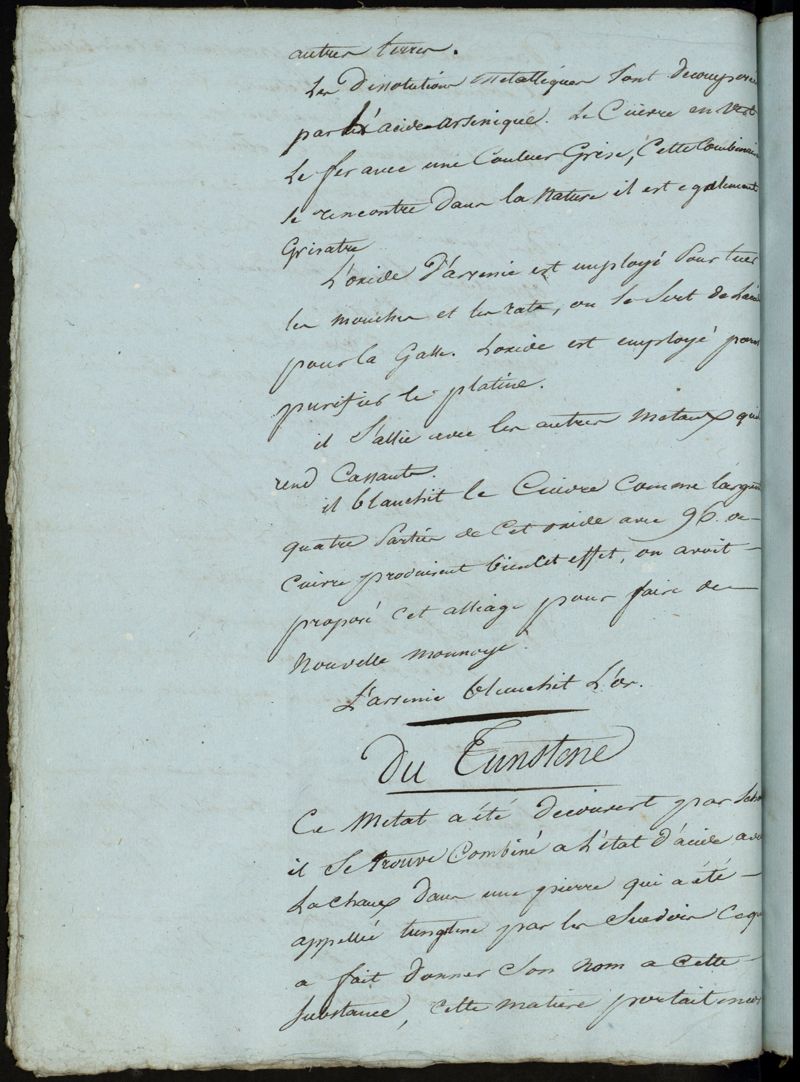 autres terres.
Les Dissolutions metalliques Sont decomposé
par L'acide arsenique. Le Cuivre en vert
Le fer avec une Couleur Grise, Cette Combinai
se rencontre Dans la Nature il est egalement
Grisatre
L'oxide D'arsenic est employé Pour tuer
les mouches et les rats, on Se Sert de L'aci
pour la Galle. L'oxide est employé pour
purifier le platine.
il S'allie avec les autres Metaux qu'il
rend Cassants.
il blanchit le Cuivre Comme l'argent
quatre Parties de Cet oxide avec 96. de
Cuivre produisent bien Cet effet, on avoit
proposé Cet alliage pour faire de
Nouvelle monnoye.
L'arsenic blanchit L'or.
Du Tunstene
Ce Metal a été decouvert par
il Se trouve Combiné a L'état d'acide avec
La Chaux Dans une pierre qui a été
appellée tungstene par les Suedois Ce qui
a fait donner Son nom a Cette
Substance, Cette matiere portait encor